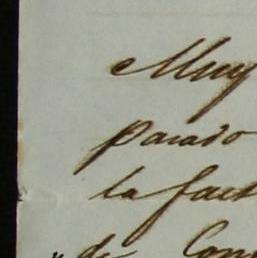 Muy
parado
la fact
" de Com